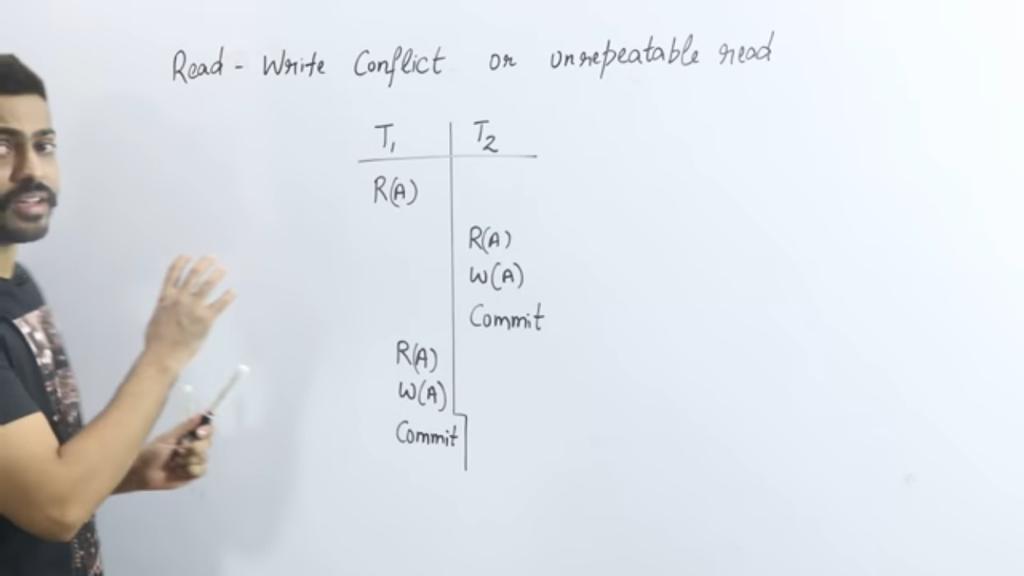 Read - Write Conflict or unrepeatable read
T1 T2
R(A)
R(A)
W(A)
Commit
R(A)
W(A)
Commit